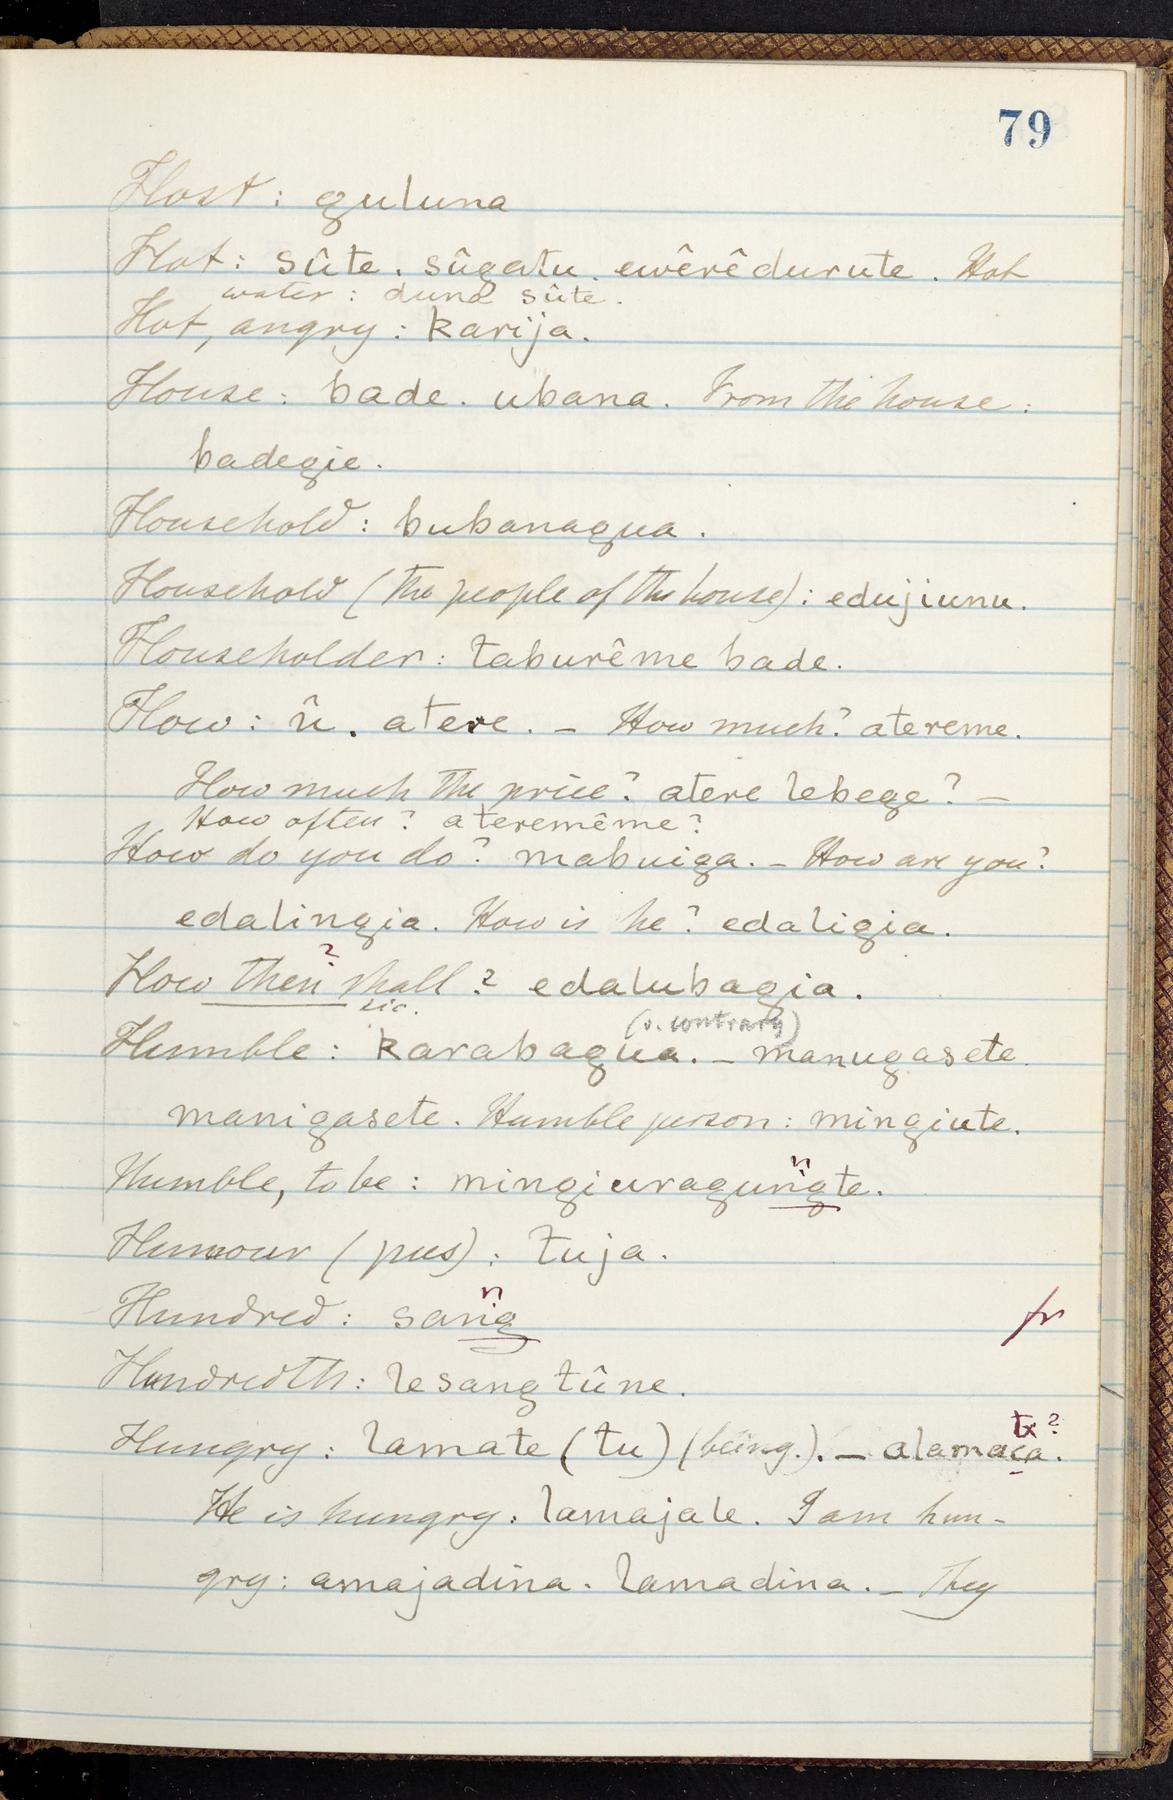 79
Host: guluna
Hot: sûte. sûgatu. ewêrêdurute. Hot
water: duna sûte.
Hot, angry: karija.
House: bade. ubana. From the house:
badegie.
Household: bubanagua.
Household (the people of the house): edujiunu.
Householder: taburême bade.
How: û. atere. – How much? atereme.
How much the price? atere lebege? –
How often? ateremême?
How do you do? mabuiga. – How are you?
edalingia. How is he? edaligia.
?
How then shall? edalubagia.
sic.
(v. contrary)
Humble: karabagua. – manugasete
manigasete. Humble person: mingiute.
n
Humble, to be: mingiuragungte.
Humour (pus): tuja.
n
Hundred: sang fr
Hundredth: lesangtûne.
tx?
Hungry: lamate (tu) (being.). – alamaca.
He is hungry: lamajale. I am hun-
gry: amajadina. lamadina. – They